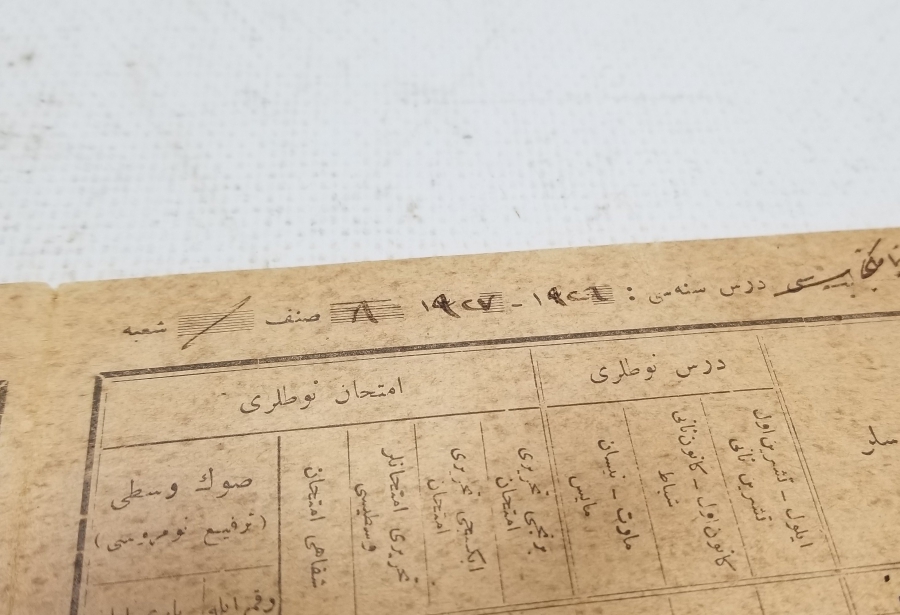 درس سنه‌سی : ١٩٢٦ - ١٩٢٧ ٨ صنف شعبه
درس نوطلری
امتحان نوطلری
ایلول - تشرین اول
تشرین ثانی
كانون اول - كانون ثانی
شباط
مارت - نیسان
مایس
برنجی تحریری
امتحان
ایكنجی تحریری
امتحان
تحریری امتحانلر
وسطیسی
شفاهی امتحان
صوك وسطی
(ترفیع نومروسی)